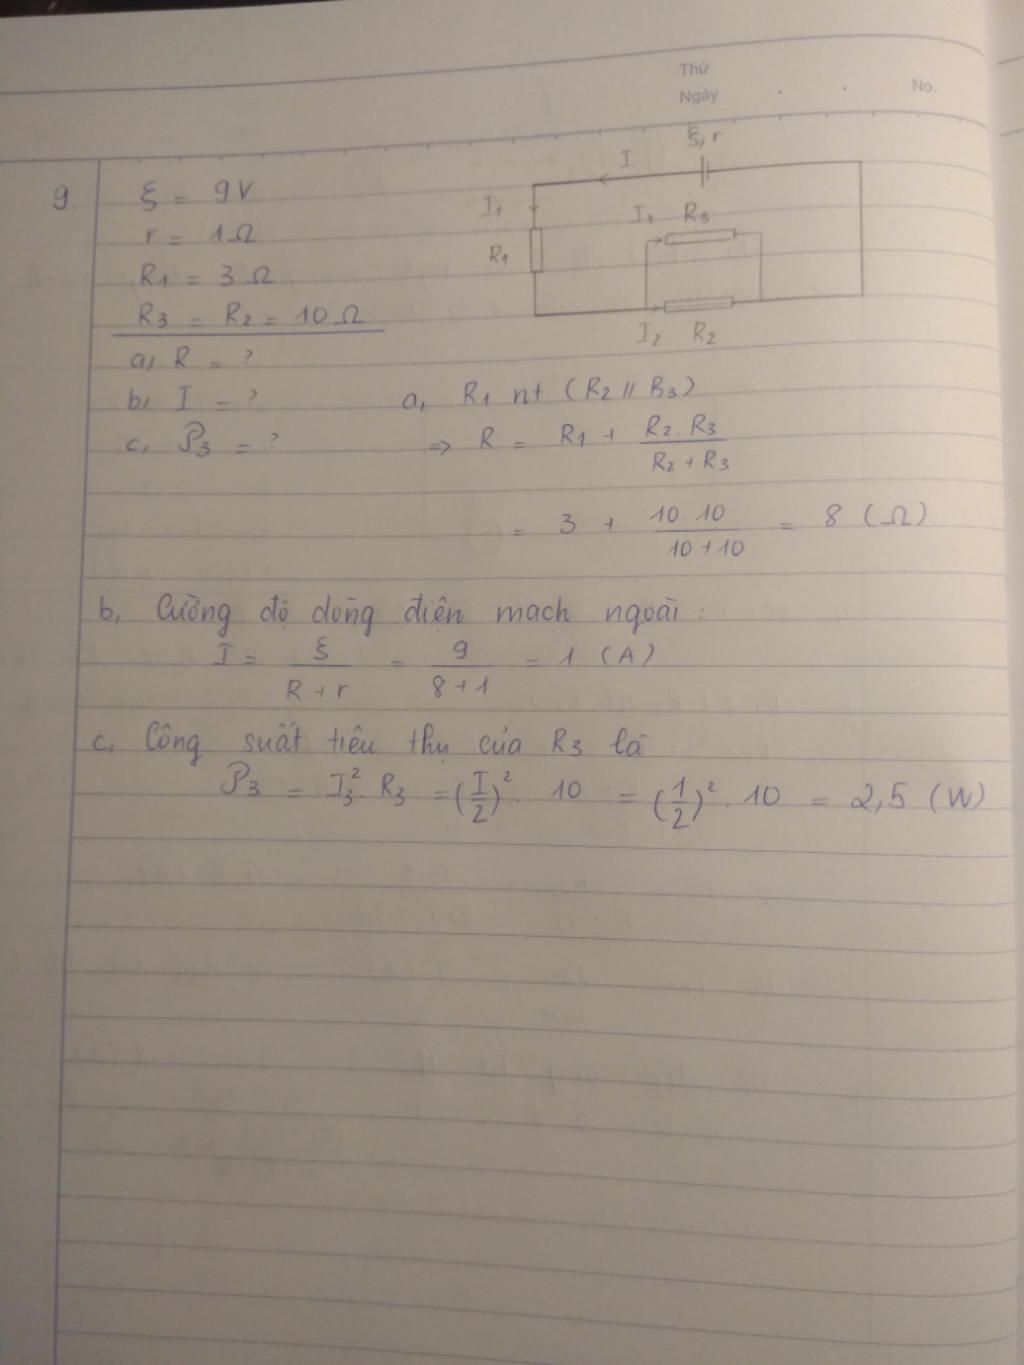 Thứ
Ngày . . No.
9.
ξ = 9V
r = 1Ω
R1 = 3Ω
R3 = R2 = 10Ω
a, R = ?
b, I = ?
c, P3 = ?
ξ, r
I
I1
R1
I3 R3
I2 R2
a, R1 nt (R2 // R3)
⇒ R = R1 + R2.R3 / R2 + R3
= 3 + 10 10 / 10 + 10 = 8 (Ω)
b, Cường độ dòng điện mạch ngoài :
I = ξ / R + r = 9 / 8 + 1 = 1 (A)
c, Công suất tiêu thụ của R3 là :
P3 = I3². R3 = (I/2)². 10 = (1/2)². 10 = 2,5 (W)